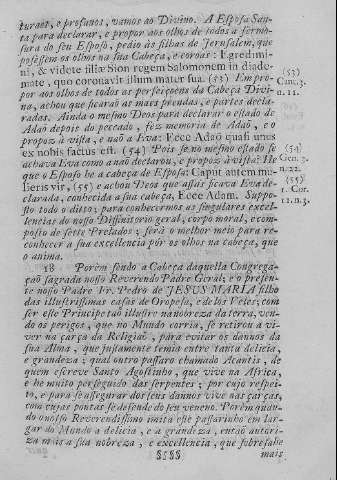 turaes, e profanos, vamos ao Divino. A Esposa San-
ta para declarar, e propor aos olhos de todos a fermo-
sura do seu Esposo, pedio às filhas de Jerusalem, que
pozessem os olhos na sua Cabeça, e coroas: Egredimi-
ni, & videte filiæ Sion regem Salomonem in diade-
mate, quo coronavit illum mater sua. (53) Em pro-
por aos olhos de todos as perfeiçoens da Cabeça Divi-
na, achou que ficaraõ as mais prendas, e partes decla-
radas. Ainda o mesmo Deos para declarar o estado de
Adaõ depois do peccado, fez memoria de Adaõ, e o
propoz à vista, e naõ Eva: Ecce Adaõ quasi unus
ex nobis factus est. (54) Pois se no mesmo estado se
achava Eva como a naõ declarou, e propoz à vista? He
que o Esposo he a cabeça de Esposa: Caput autem mu-
lieris vir, (55) e achou Deos que assás ficava Eva de-
clarada, conhecida a sua cabeça, Ecce Adam. Suppo-
sto todo o ditto; para conhecermos as singulares excel-
lencias do nosso Diffinitorio geral, corpo moral, e com-
posto de sete Prelados; serà o melhor meio para re-
conhecer a sua excellencia pôr os olhos na cabeça, que
o anima.
18 Porèm sendo a Cabeça daquella Congrega-
çaõ sagrada nosso Reverendo Padre Geral; e o presen-
te nosso Padre Fr. Pedro de JESUS MARIA filho
das illustrissimas casas de Oropesa, e de los Vetes; com
ser este Principe taõ illustre na nobreza da terra, ven-
do os perigos, que no Mundo corria, se retirou a vi-
ver na çarça da Religiaõ, para evitar os dannos da
sua Alma, que justamente temia entre tanta delicia,
e grandeza; qual outro passaro chamado Acantis, de
quem escreve Santo Agostinho, que vive na Africa,
e he muito perseguido das serpentes; por cujo respei-
to, e para se assegurar dos seus dannos vive nas çarças,
com cujas pontas se defende do seu veneno. Porèm quan-
do o nosso Reverendissimo imita este passarinho em lar-
gar do Mundo a delicia, e a grandeza, entaõ autori-
za mais a sua nobreza, e excellencia, que sobresahe
§§§§ mais
(53)
Cant. 3.
n. 11.
(54)
Gen. 3.
n. 22.
(55)
1. Cor.
11. n. 3.